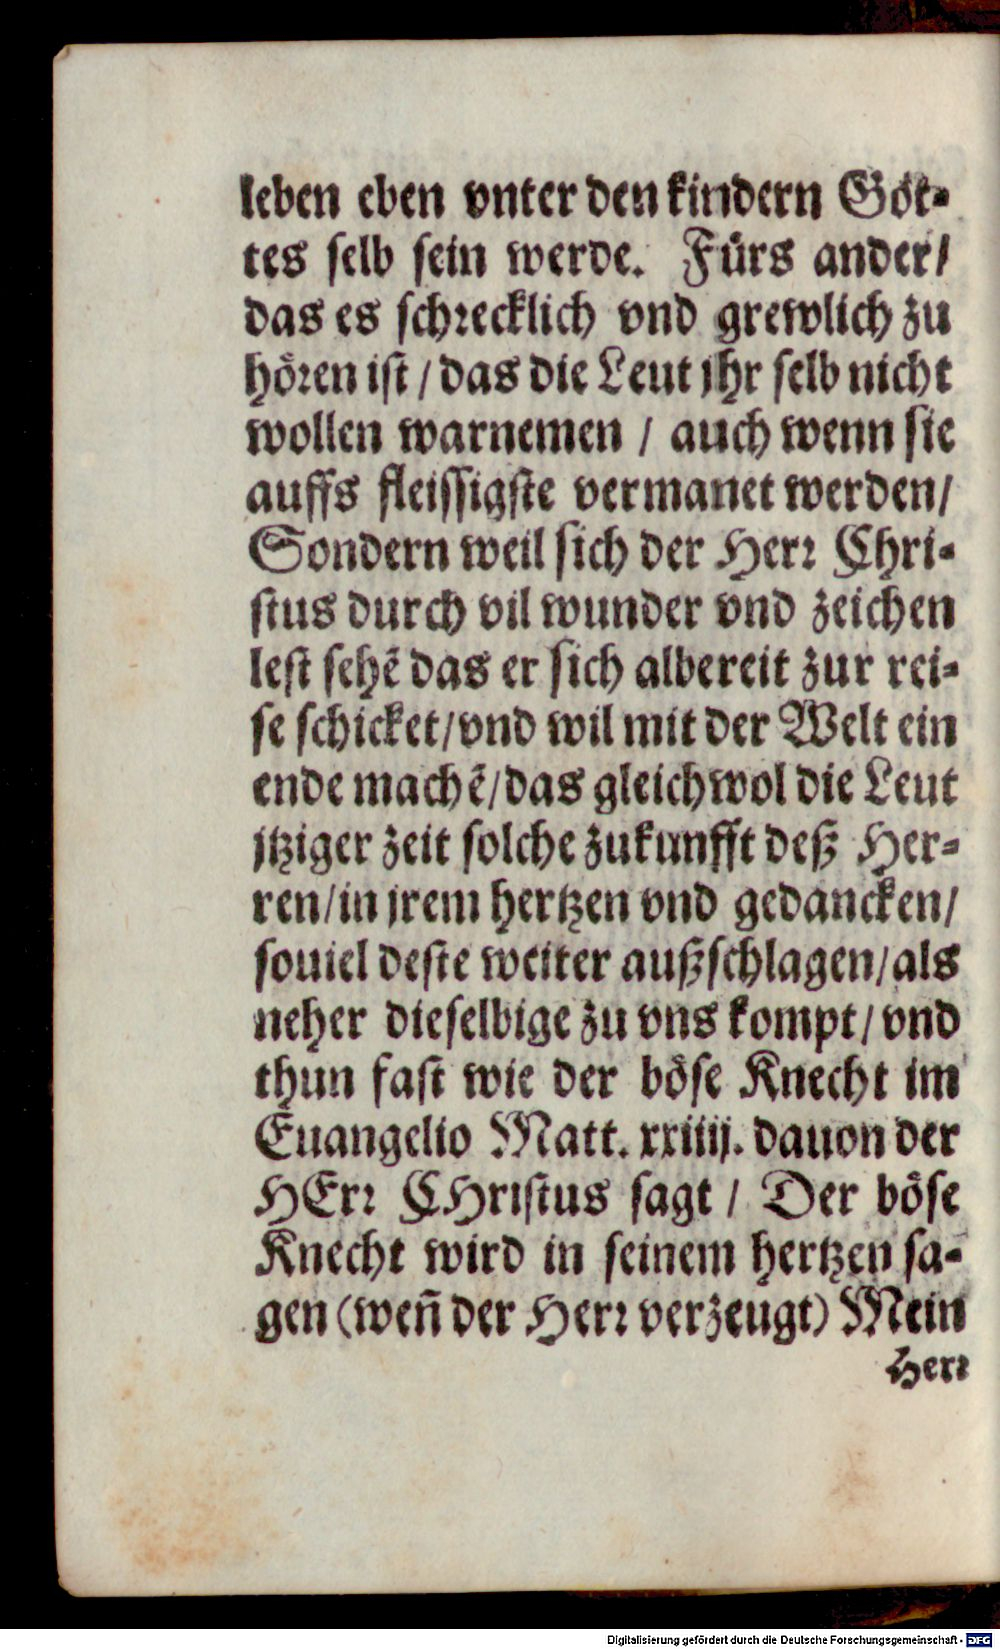 leben eben vnter den kindern Göt-
tes selb sein werde. Fürs ander/
das es schrecklich vnd grewlich zu
hören ist / das die Leut jhr selb nicht
wollen warnemen / auch wenn sie
auffs fleissigste vermanet werden/
Sondern weil sich der Herr Chri-
stus durch vil wunder vnd zeichen
lest sehē das er sich albereit zur rei-
se schicket/vnd wil mit der Welt ein
ende machē/das gleichwol die Leut
jtziger zeit solche zukunfft deß Her-
ren/in jrem hertzen vnd gedancken/
souiel deste weiter außschlagen/als
neher dieselbige zu vns kompt/vnd
thun fast wie der böse Knecht im
Euangelio Matt. xxiiij. dauon der
HErr CHristus sagt / Der böse
Knecht wird in seinem hertzen sa-
gen (weñ der Herr verzeugt) Mein
Herr
Digitalisierung gefördert durch die Deutsche Forschungsgemeinschaft - DFG